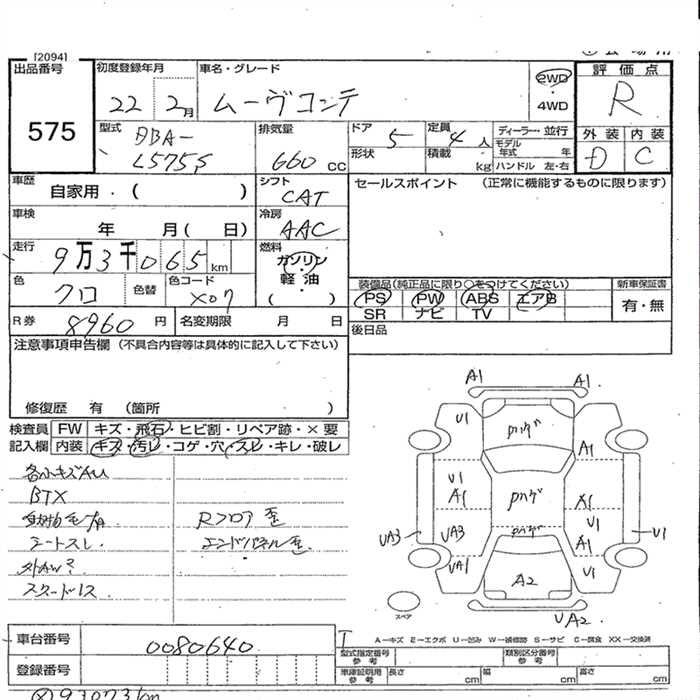 [2094]
出品番号
575
初度登録年月
22 2月
車名・グレード
ムーヴコンテ
2WD
・4WD
評価点
R
外装 内装
D C
型式
DBA-
L575S
排気量
660 cc
ドア 5
形状
定員 4人
積載 kg
ディーラー・並行
モデル年式 年
ハンドル 左・右
車歴
自家用・( )
シフト
CAT
セールスポイント (正常に機能するものに限ります)
車検
年 月( 日)
冷房
AAC
走行
9万3千065km
燃料
ガソリン・
軽油・
( )
色
クロ
色替
色コード
X07
装備品(純正品に限り○をつけてください)
PS PW ABS エアB
SR ナビ TV
新車保証書
有・無
R券 8960 円
名変期限 月 日
後日品
注意事項申告欄 (不具合内容等は具体的に記入して下さい)
修復歴 有 (箇所 )
検査員
記入欄
FW キズ・飛石・ヒビ割・リペア跡・×要
内装 キズ・汚レ・コゲ・穴・スレ・キレ・破レ
各小キズAU
BTX
シートスレ
Rフロア歪
エンドパネル歪
A1 A1
U1
A1
U1
A1
A1
U1
UA3
UA3
A1
U1
UA1
U1
A2
UA2
スペア
A-キズ E-エクボ U-凹み W-補修跡 S-サビ C-腐食 XX-交換済
車台番号
0080640
登録番号
型式指定番号
参考
類別区分番号
参考
車庫証明用
参考
長さ cm
幅 cm
高さ cm
93073km